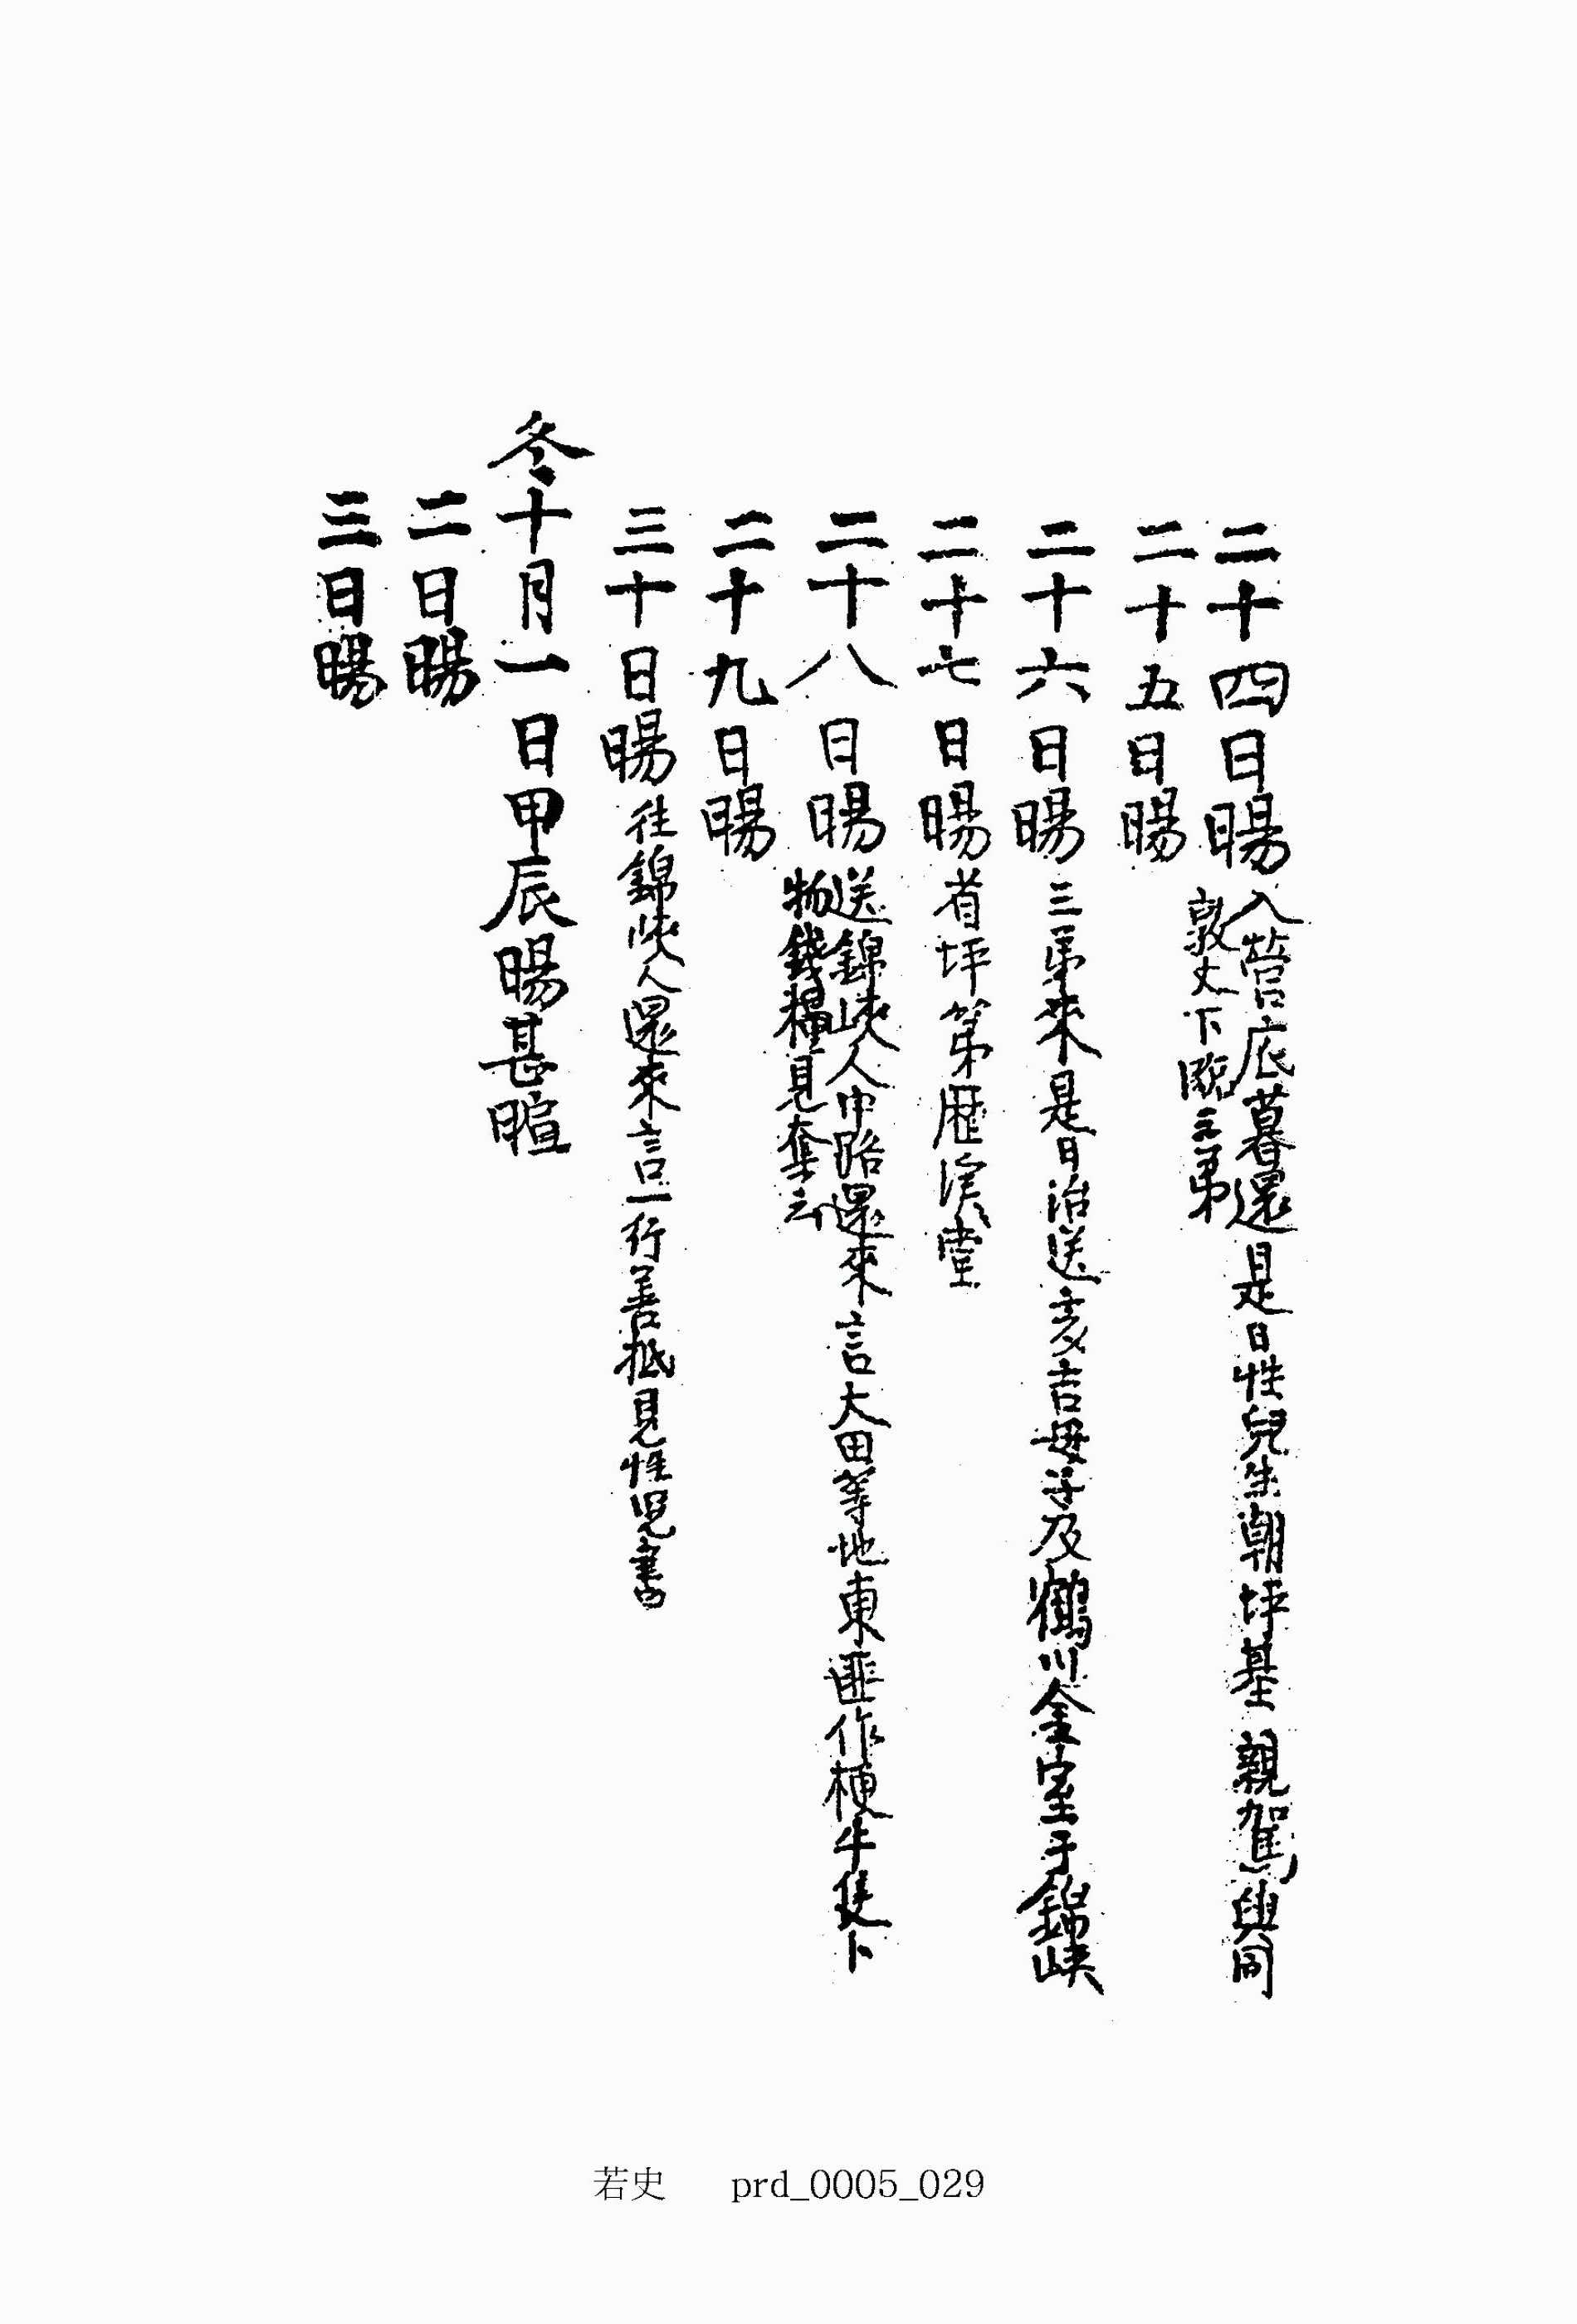 二十四日暘 入營底暮還 是日性兒生朝坪基 親駕與同
敦丈下臨三弟
二十五日暘
二十六日暘 三弟來是日治送亥吉母子及鶴川金室于錦峽
二十七日暘 省坪第歷渓堂
二十八日暘 送錦峽人中路還來言大田等地東匪作梗牛隻卜
物錢糧見奪云
二十九日暘
三十日暘 往錦峽人還來言一行善抵見性児書
冬十月一日甲辰暘甚暄
二日暘
三日暘
若史 prd_0005_029